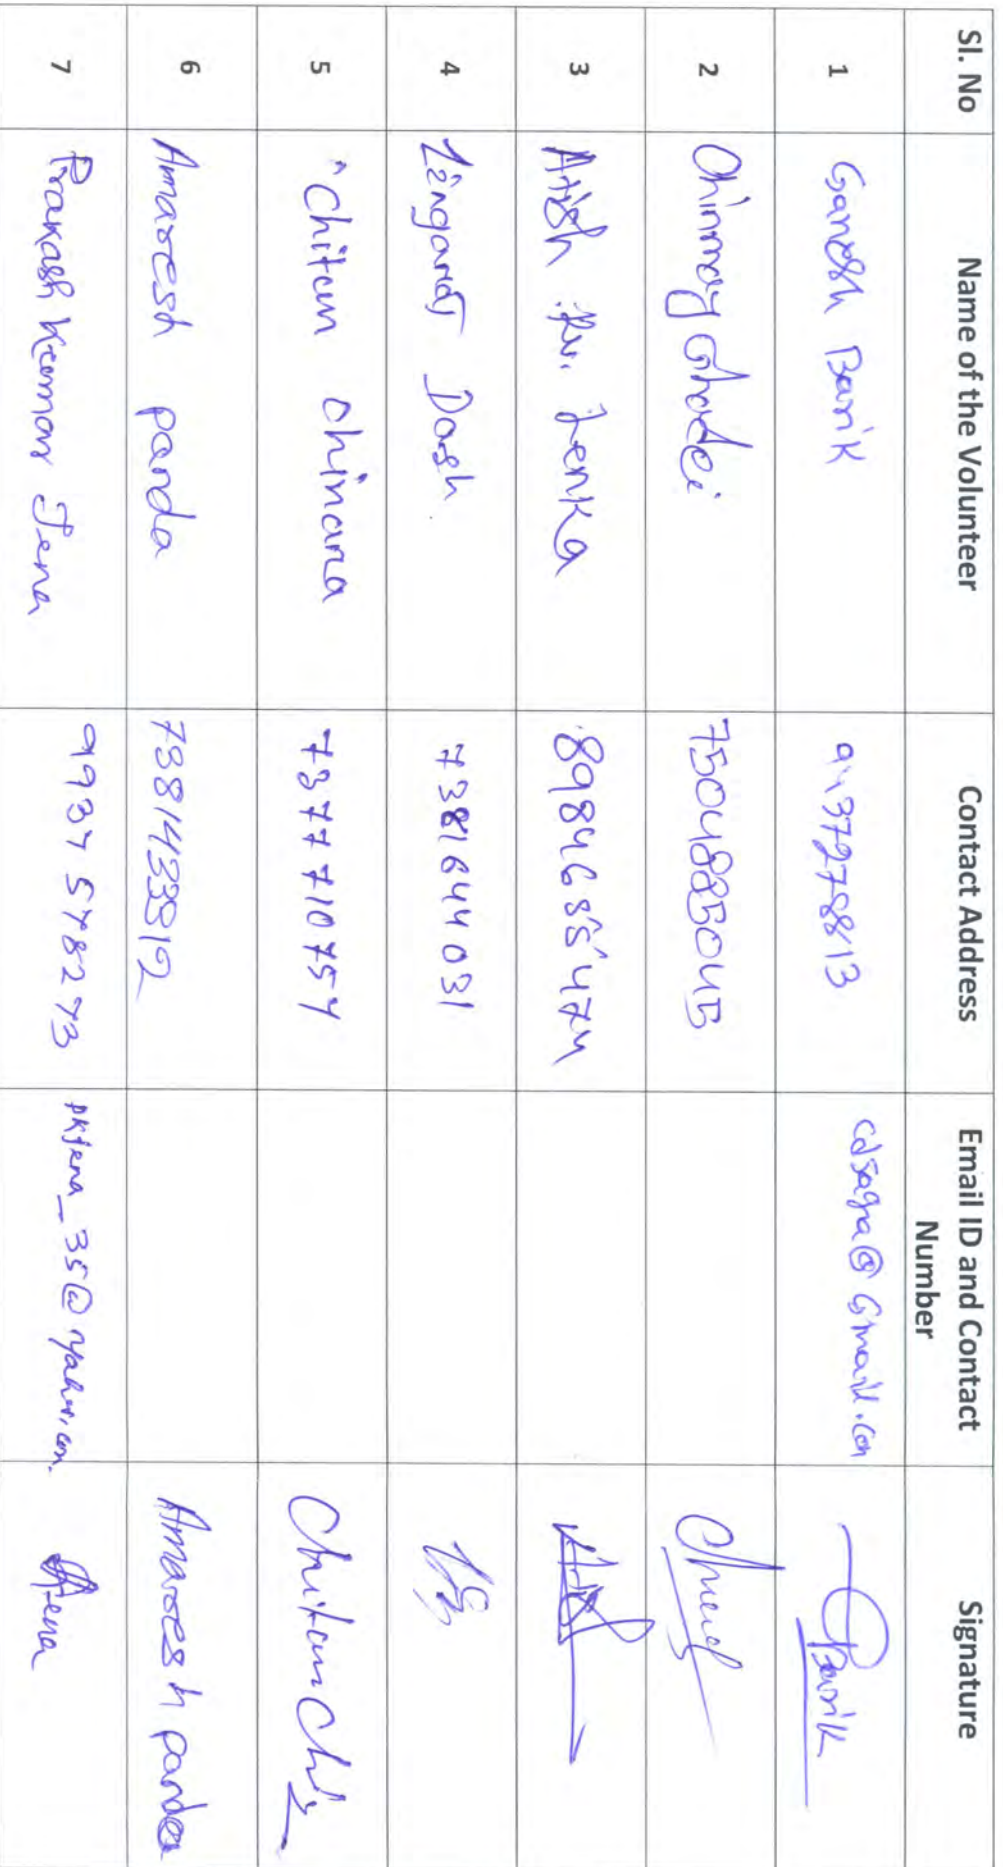 Sl. No Name of the Volunteer Contact Address Email ID and Contact Number Signature
1 Ganesh Barik cdsagra@Gmail.com Barik
2 Chinmay Ghadei 7504885045
3 Atish Ku. Lenka 8984655474
4 Lingaraj Dash 7381644031
5 Chitun Chinara 7377710757
6 Amaresh panda 7381433912 Amaresh panda
7 Prakash Kumar Jena 9937578273 pkjena_35@yahoo.com Jena